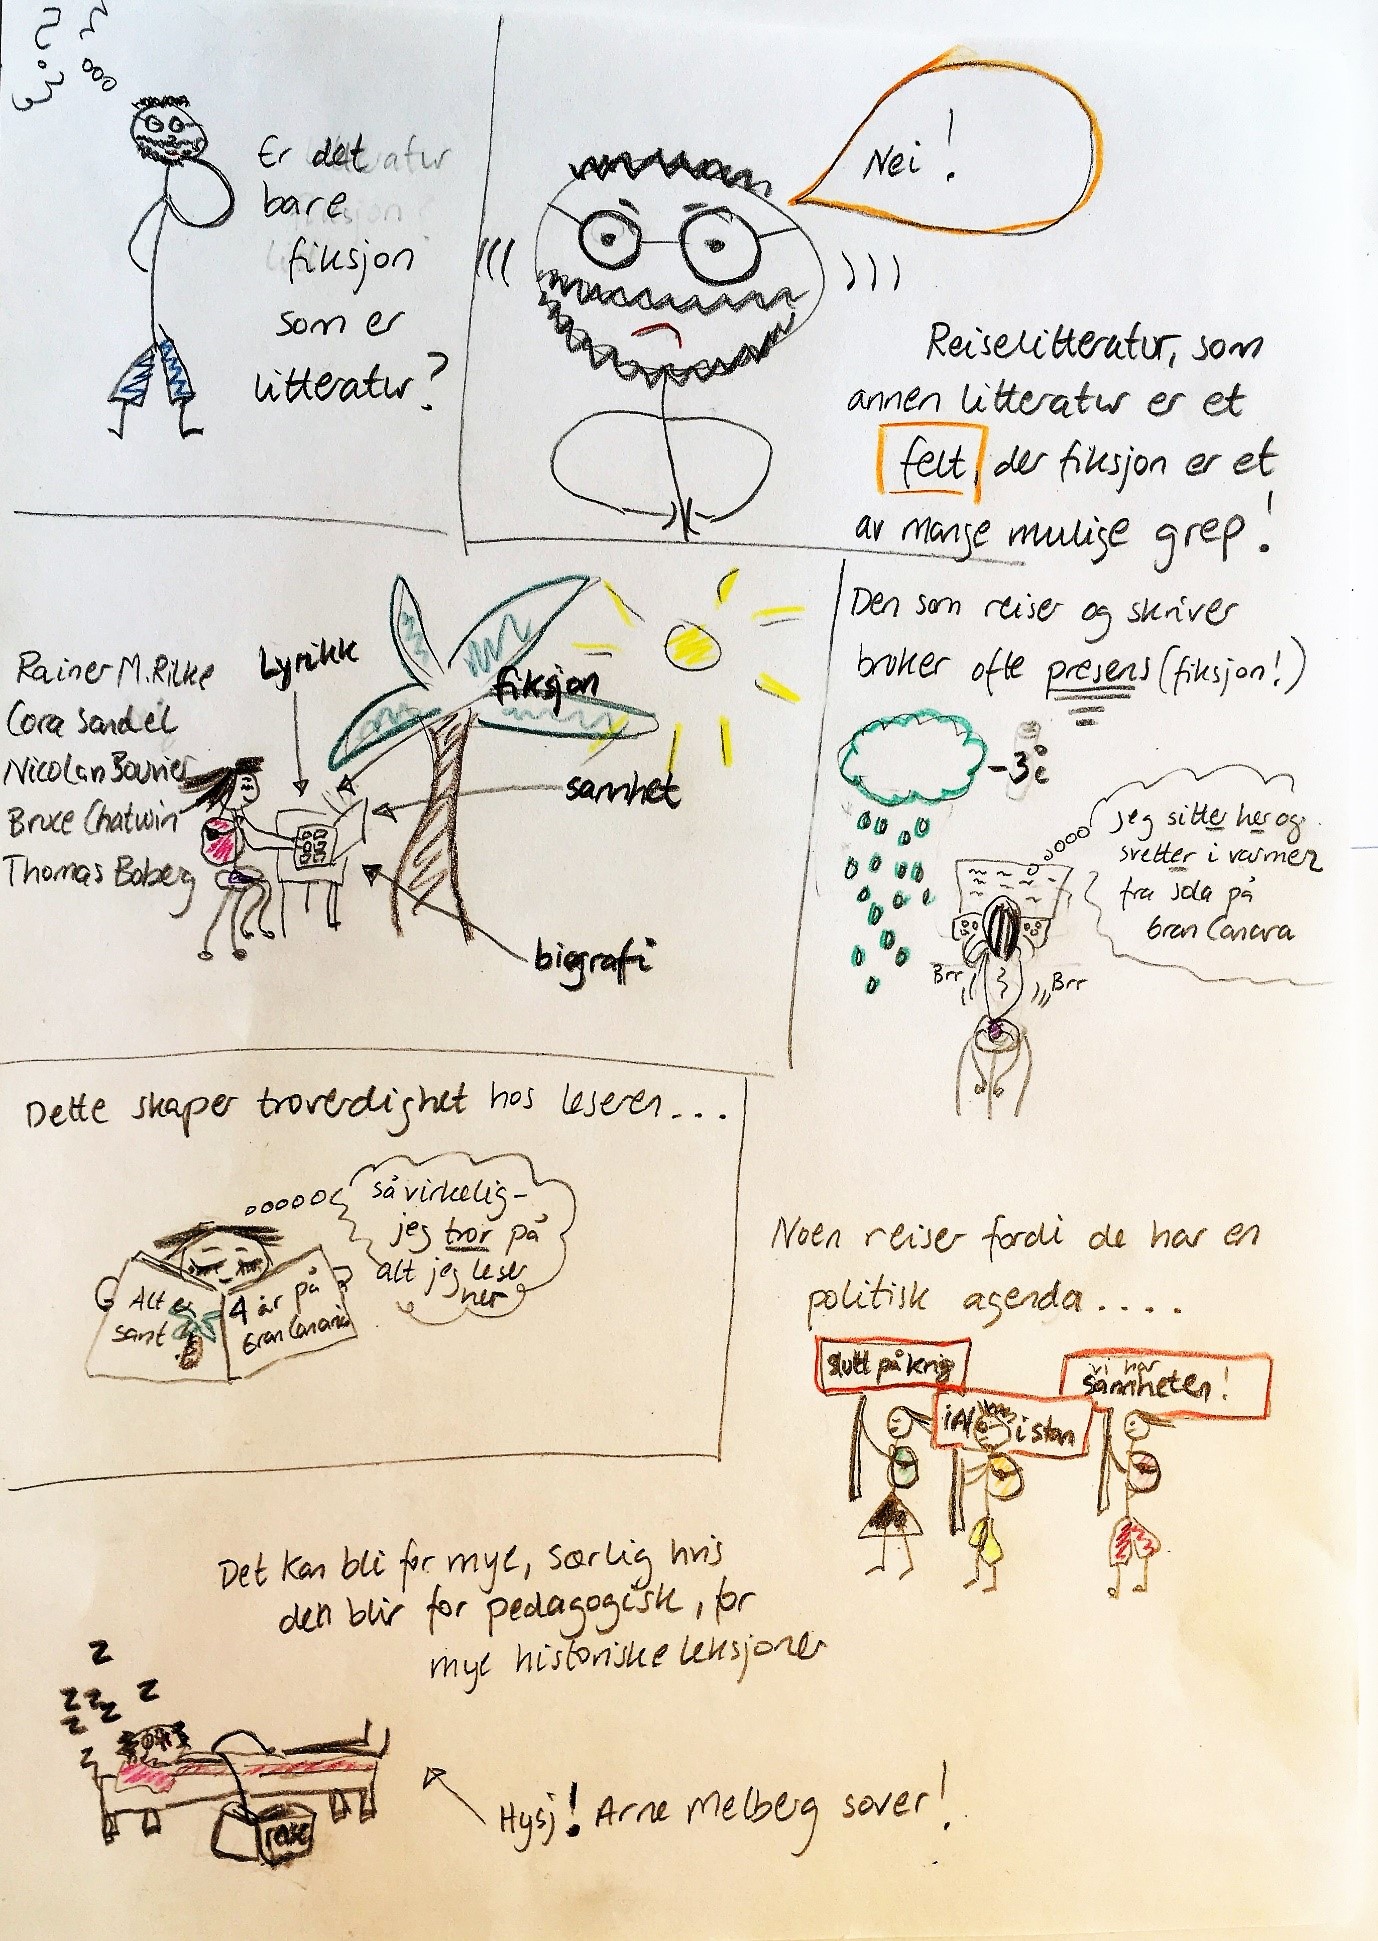 Er det
bare
fiksjon
som er
litteratur?
Nei!
Reiselitteratur, som
annen litteratur er et
felt, der fiksjon er et
av mange mulige grep!
Rainer M. Rilke
Cora Sandel
Nicolan Bouvier
Bruce Chatwin
Thomas Boberg
Lyrikk
fiksjon
sannhet
biografi
Den som reiser og skriver
bruker ofte presens (fiksjon!)
-3
jeg sitter her og
svetter i varmen
fra sola på
Gran Canara
Brr
Brr
Dette skaper troverdighet hos leseren...
så virkelig-
jeg tror på
alt jeg leser
her
Alt er
sant
4 år på
Gran Canaria
Noen reiser fordi de har en
politisk agenda....
slutt på krig
vi har
sannheten!
istan
Det kan bli for mye, særlig hvis
den blir for pedagogisk, for
mye historiske leksjoner
z
z z z
z z
z
Hysj! Arne Melberg sover!
reise